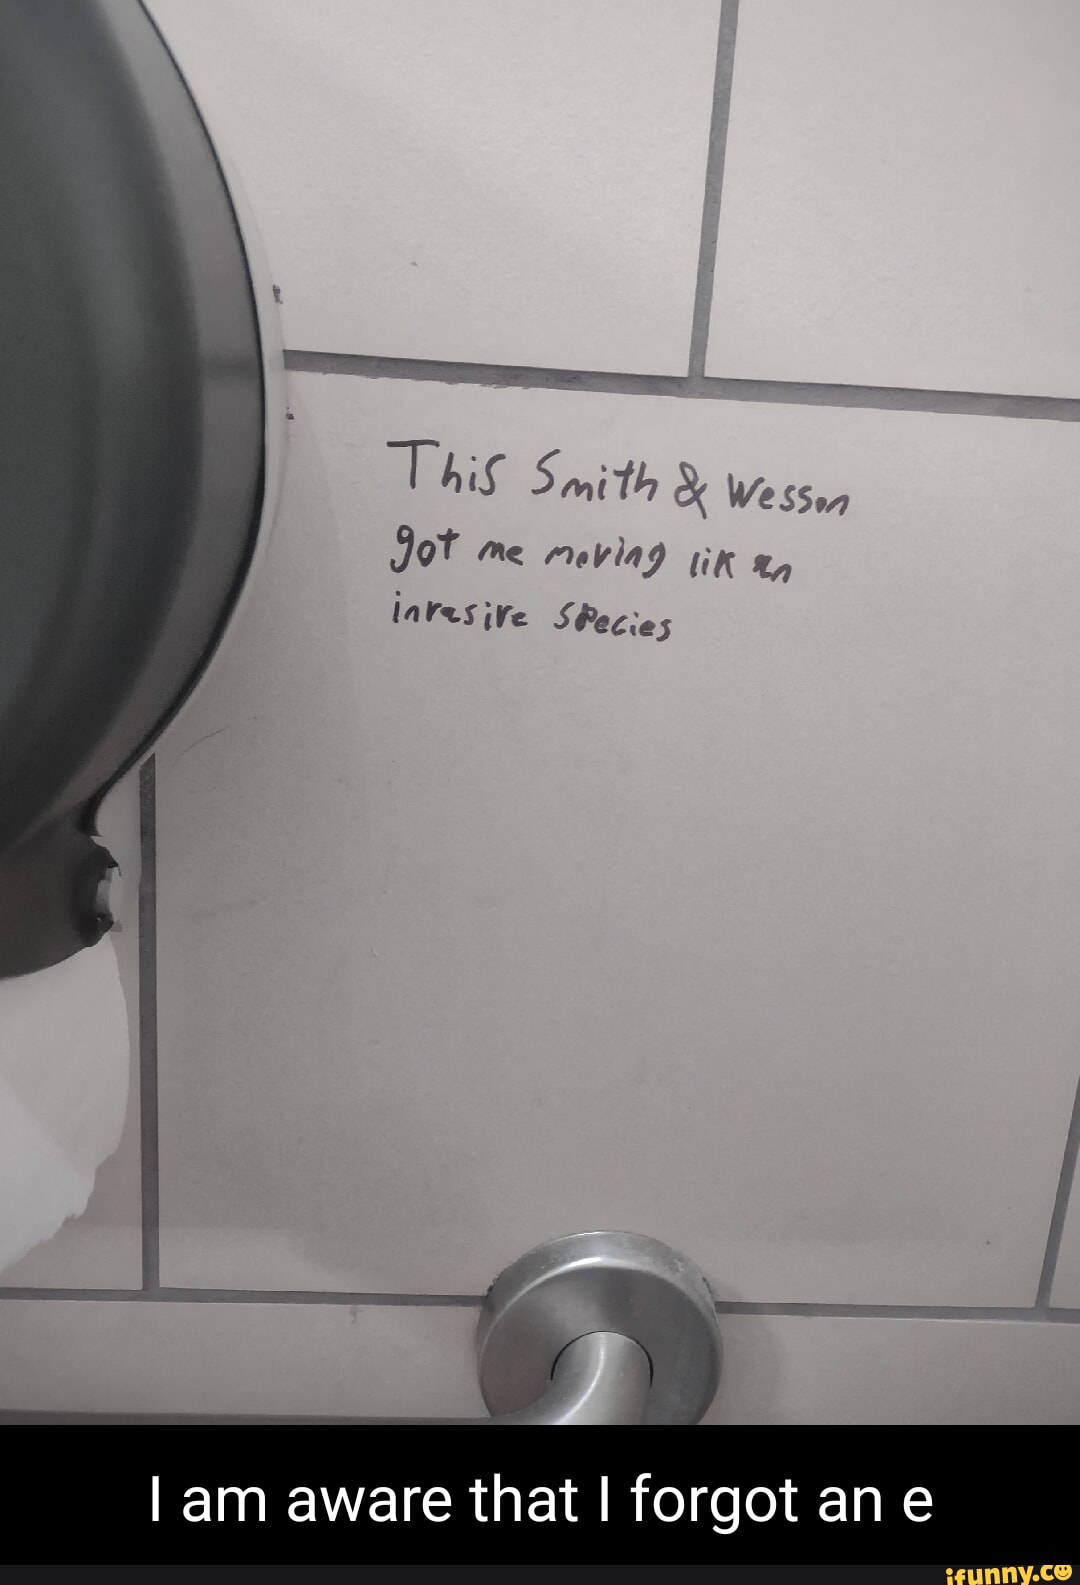 This Smith & Wesson
got me moving lik an
invasive species
I am aware that I forgot an e
ifunny.co